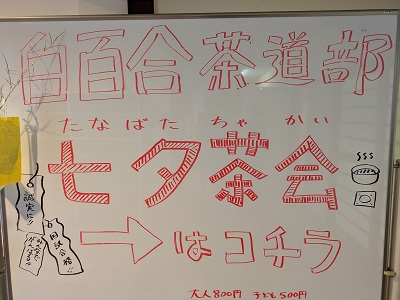 白百合茶道部
たなばた ちゃ かい
七夕茶会
→はコチラ
誠実に!!
国試合格!!
大人800円 子ども500円